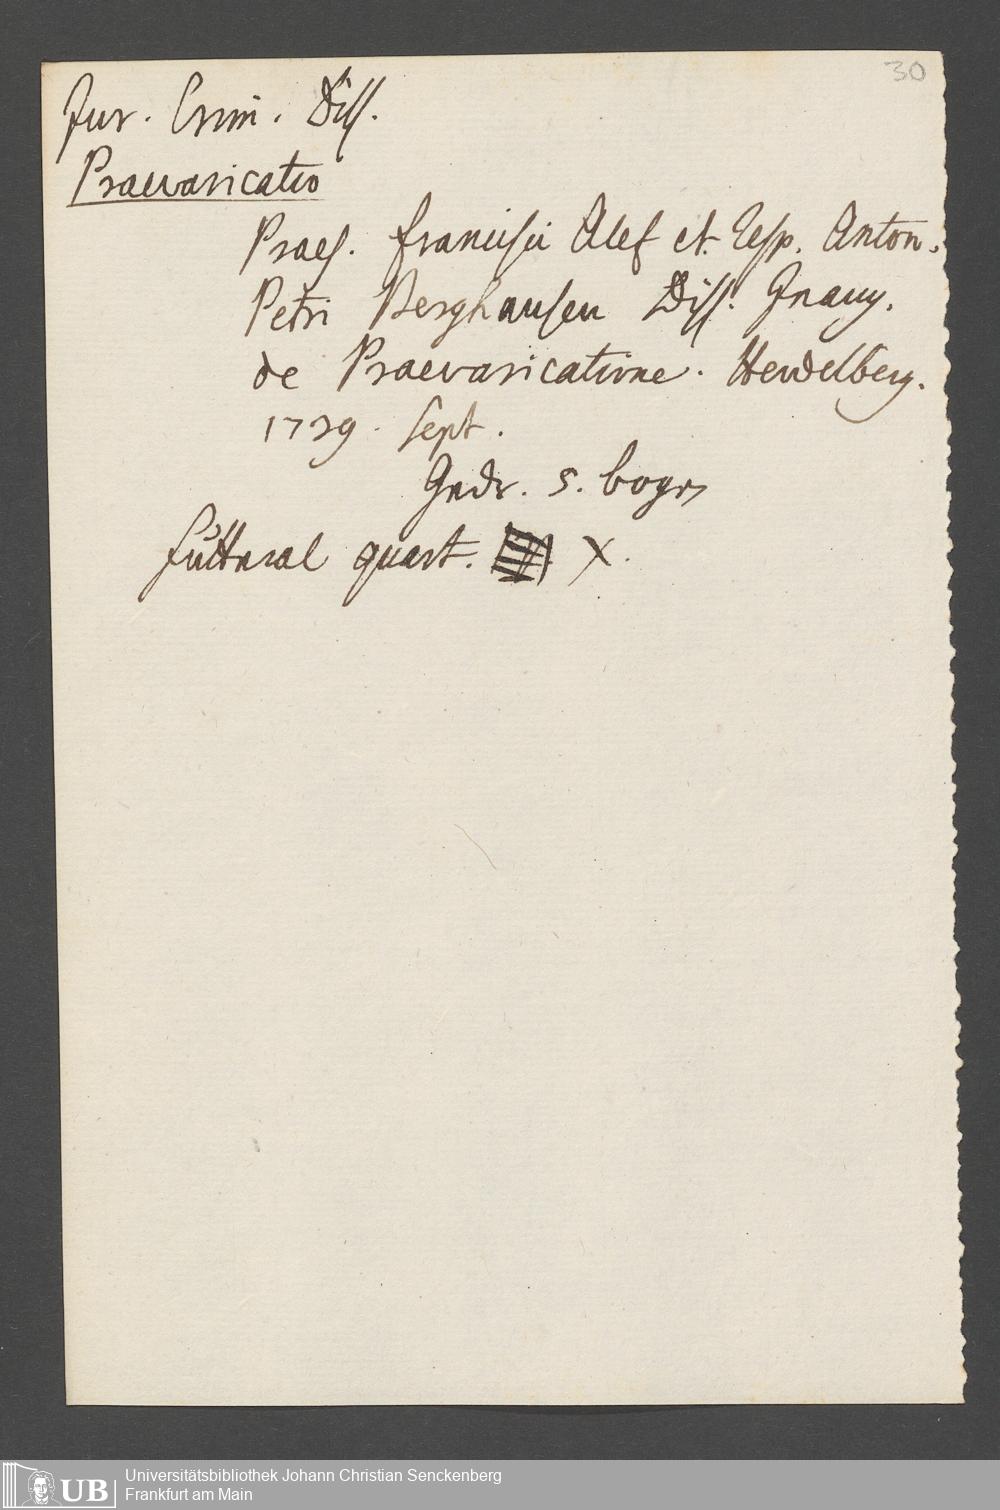 30
Jur. Crim. Diss.
Praevaricatio
Praes. Francisci Alef et Resp. Anton.
Petri Berghausen Diss. Inaug.
de Praevaricatione. Heidelberg.
1739. Sept.
Gedr. 5. bogen
Futteral quart. X.
UB
Universitätsbibliothek Johann Christian Senckenberg
Frankfurt am Main